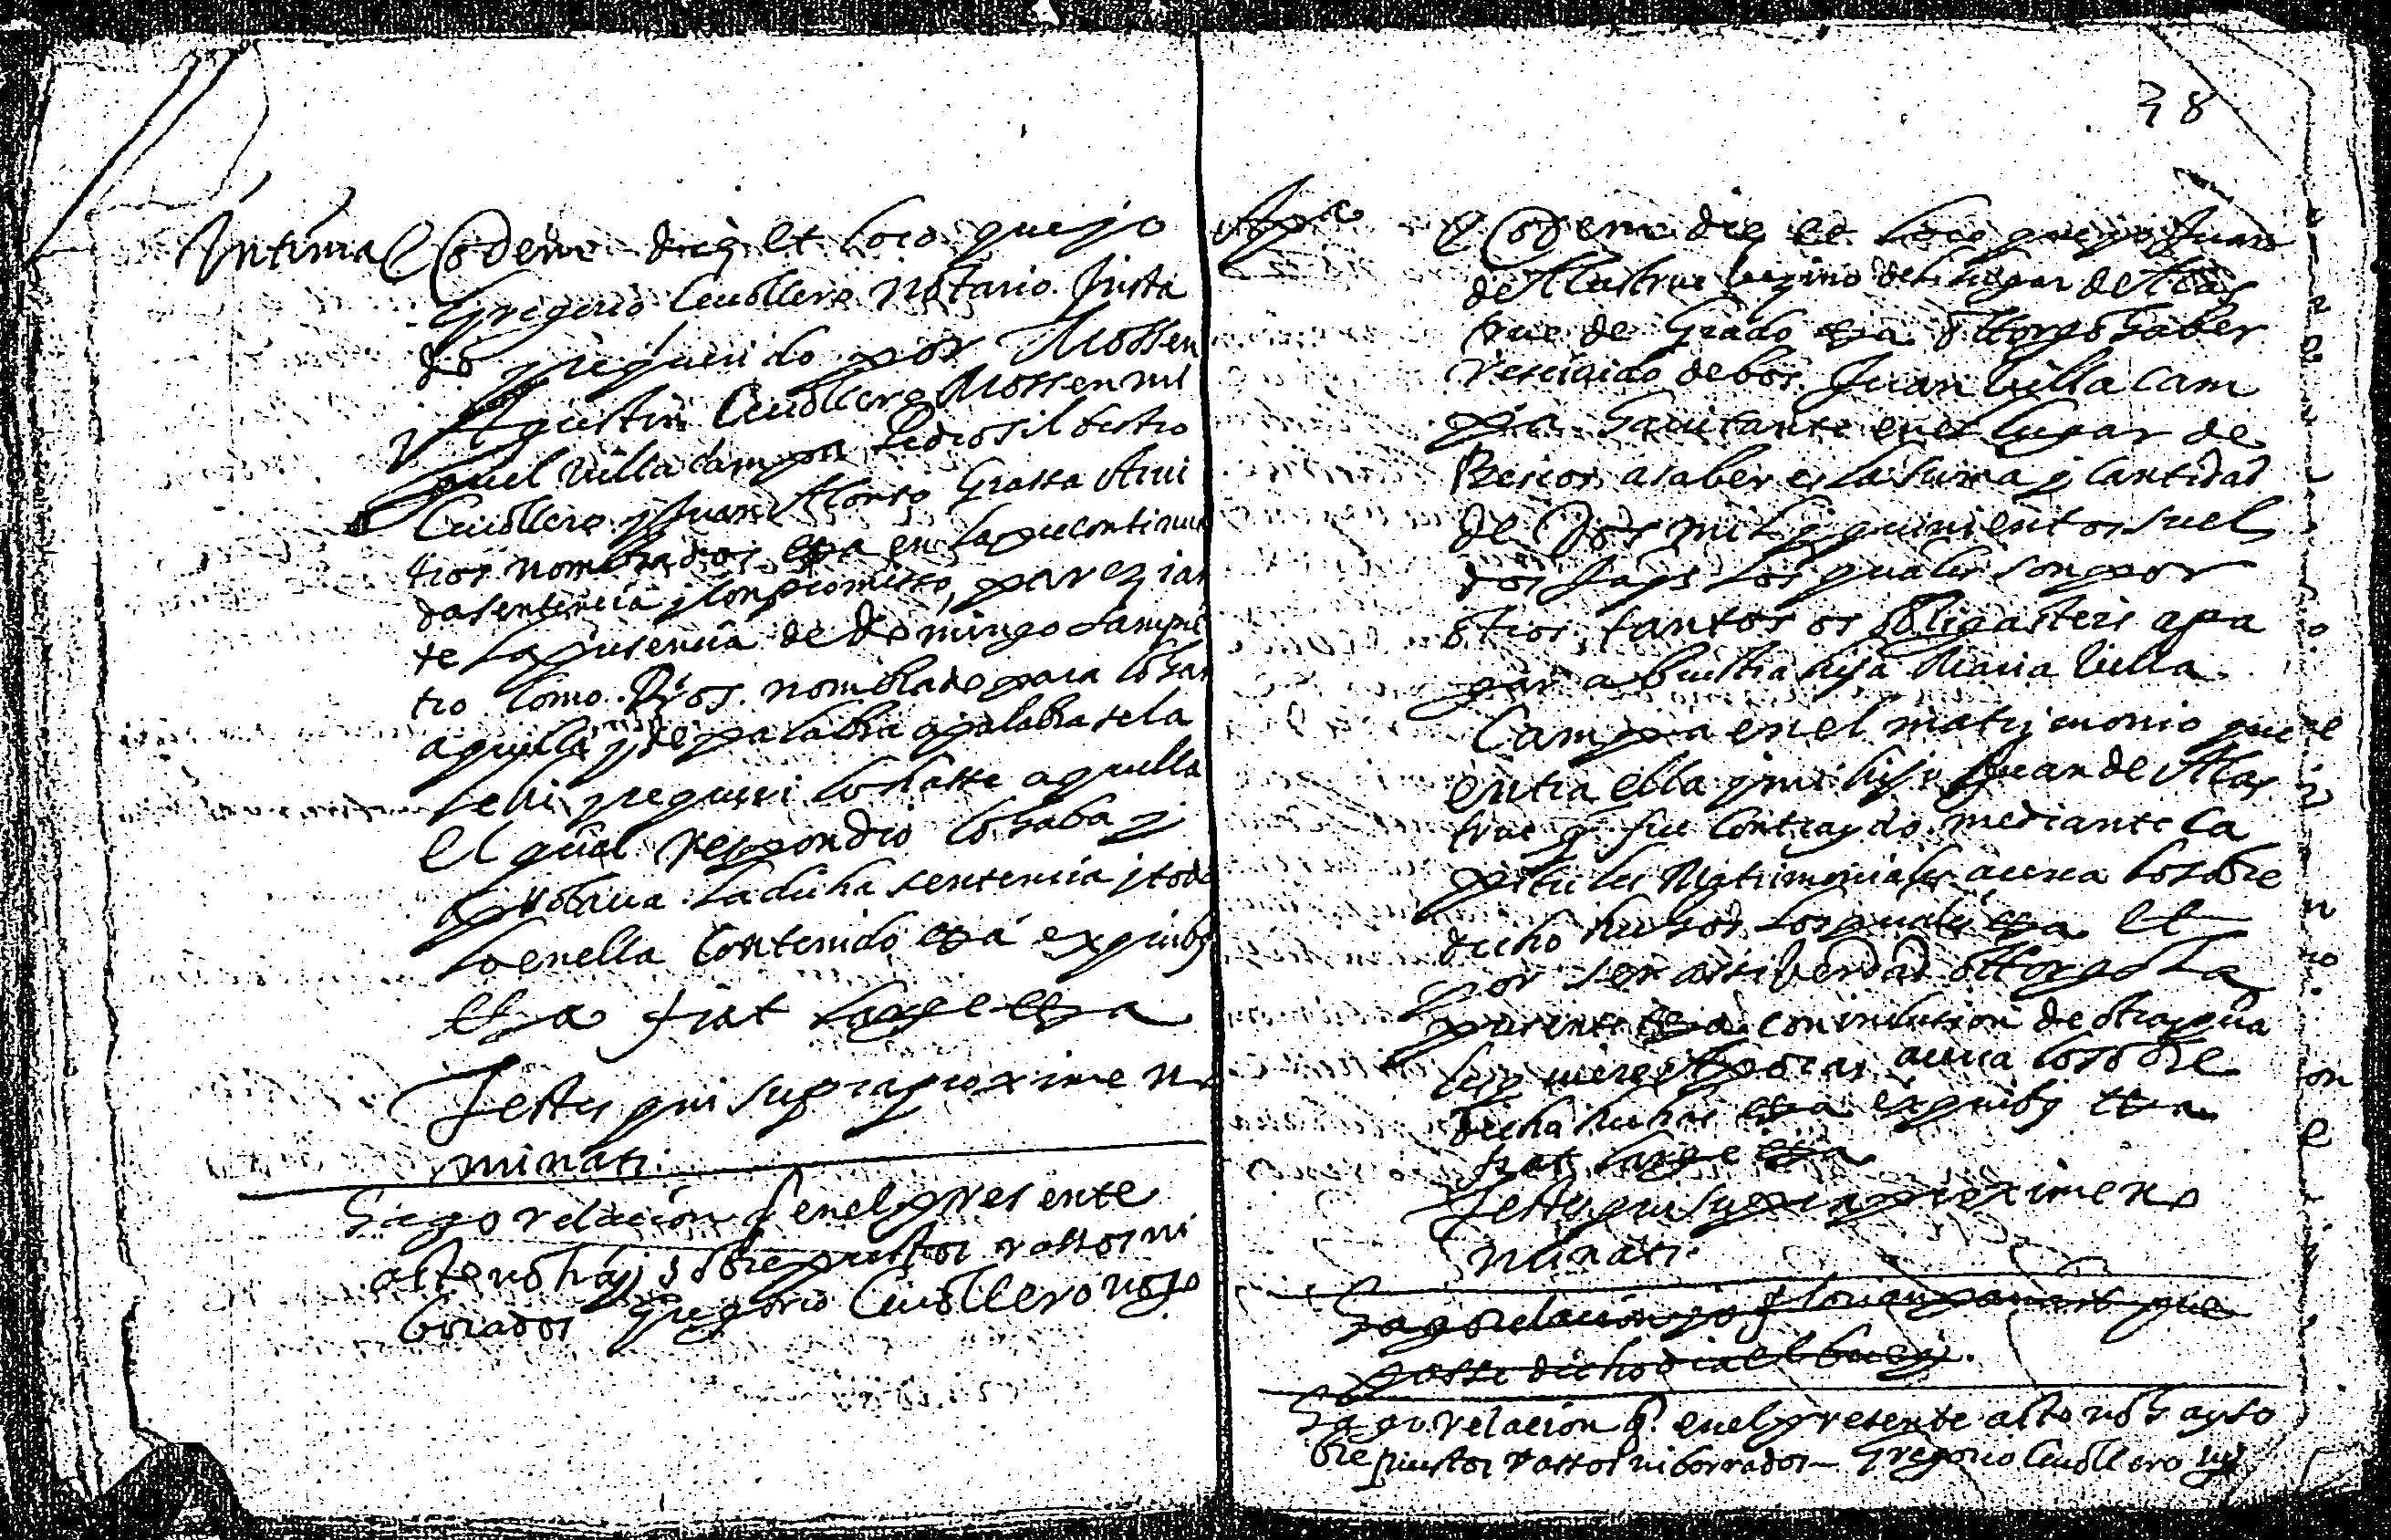 Intima Eodem die et loco que yo
Gregorio Ceuollero Notario Insta
do y requerido por Mossen
Agustin Ceuollero Mossen mi
guel Villacampa Pedro sil bestro
Ceuollero y Juan Alonso Grassa Arui
tros nombrados etza en la precontinua
da sentencia y compromisso, parezian
te la presencia de Domingo Sampie
tro como nombrado para lohar
aquella y de palabra a palabra se la
lehi y requeri lohasse aquella
el qual respondio lohaba y
aprobaua la dicha sentencia y todo
lo en ella contenido etza ex quibus
etza fiat large etza
Testes qui supra proxime no
minati
Hago relacion q en el presente
acto no hay sobrepuestos rassos ni
borrados Gregorio Ceuollero noto
38
Apa Eodem die et loco que yo Juan
de Allastrue bezino del lugar de Allas
true de Grado etza ottorgo haber
rescibido de bos Juan Villa cam
pa hauitante en el lugar de
Bescos a saber es la suma y cantidad
de Dos mil y quinientos suel
dos Jaqs los quales son por
otros tantos os obligasteis a pa
gar a buestra hija Maria Villa
Campa en el matrimonio que
entra ella y mi hijo Juan de Allas
true q fue contraydo mediante ca
pitulos Matrimoniales acerca lo sobre
dicho hechos los quales etza et
por ser assi berdad ottorgo la
presente etza con inclusion de otras qua
lesquiere Apocas acerca lo sobre
dicho hechas etza ex quibus etza
fiat large etza
Testes qui supra proxime no
minati
Hago relacion yo que
posse dicho dia el
Hago relacion q. en el presente acto no hay so
bre puestos rassos ni borrados Gregorio Ceuollero noto